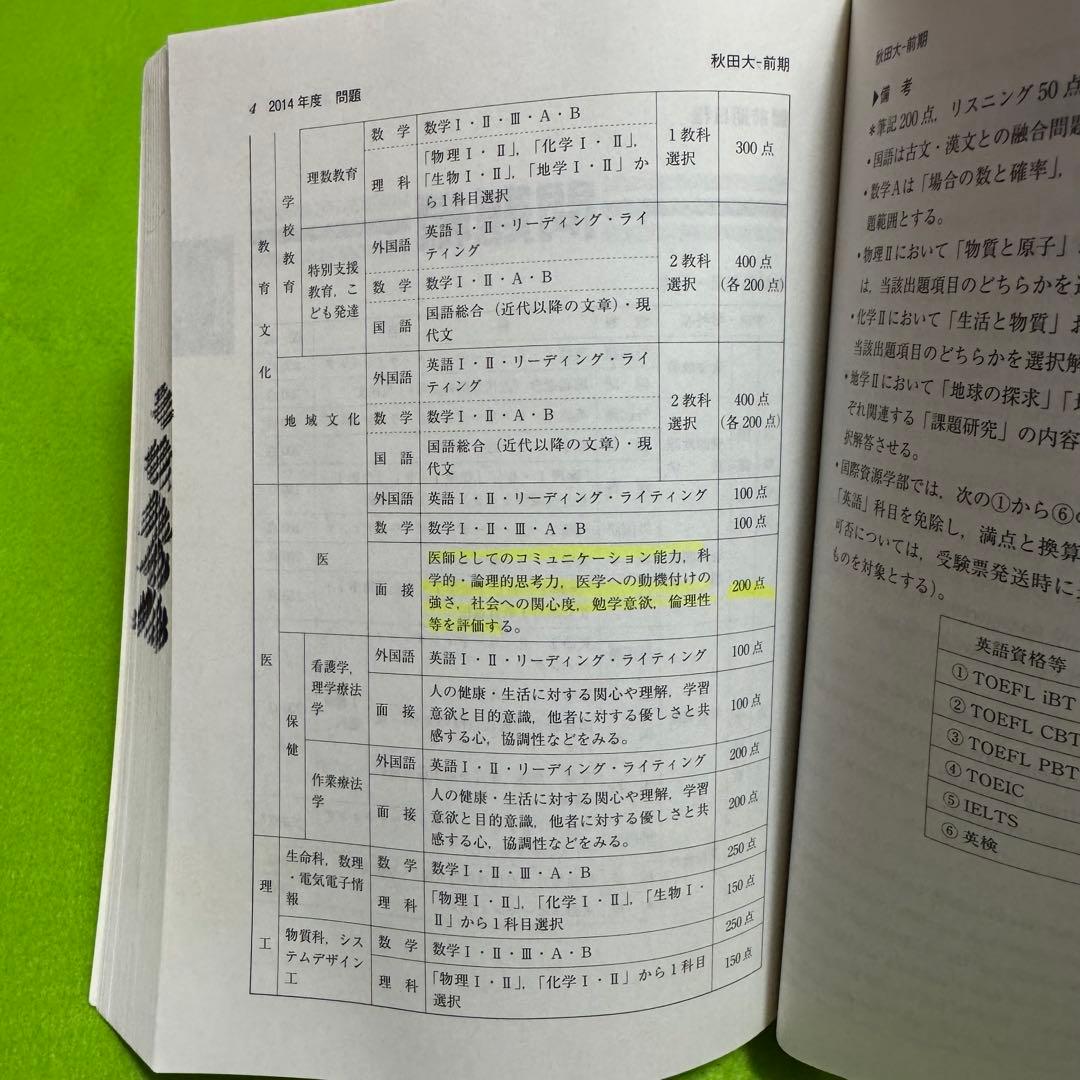 秋田大-前期
4 2014年度 問題
教育文化
学校教育
理数教育
数学
数学Ⅰ・Ⅱ・Ⅲ・A・B
理科
「物理Ⅰ・Ⅱ」,「化学Ⅰ・Ⅱ」,
「生物Ⅰ・Ⅱ」,「地学Ⅰ・Ⅱ」か
ら1科目選択
1教科
選択
300点
特別支援
教育, こ
ども発達
外国語
英語Ⅰ・Ⅱ・リーディング・ライ
ティング
数学
数学Ⅰ・Ⅱ・A・B
国語
国語総合(近代以降の文章)・現
代文
2教科
選択
400点
(各200点)
地域文化
外国語
英語Ⅰ・Ⅱ・リーディング・ライ
ティング
数学
数学Ⅰ・Ⅱ・A・B
国語
国語総合(近代以降の文章)・現
代文
2教科
選択
400点
(各200点)
医
医
外国語
英語Ⅰ・Ⅱ・リーディング・ライティング
100点
数学
数学Ⅰ・Ⅱ・Ⅲ・A・B
100点
面接
医師としてのコミュニケーション能力, 科
学的・論理的思考力, 医学への動機付けの
強さ, 社会への関心度, 勉学意欲, 倫理性
等を評価する。
200点
保健
看護学,
理学療法
学
外国語
英語Ⅰ・Ⅱ・リーディング・ライティング
100点
面接
人の健康・生活に対する関心や理解, 学習
意欲と目的意識, 他者に対する優しさと共
感する心, 協調性などをみる。
100点
作業療法
学
外国語
英語Ⅰ・Ⅱ・リーディング・ライティング
200点
面接
人の健康・生活に対する関心や理解, 学習
意欲と目的意識, 他者に対する優しさと共
感する心, 協調性などをみる。
200点
理工
生命科, 数理
・電気電子情
報
数学
数学Ⅰ・Ⅱ・Ⅲ・A・B
250点
理科
「物理Ⅰ・Ⅱ」,「化学Ⅰ・Ⅱ」,「生物Ⅰ・
Ⅱ」から1科目選択
150点
物質科, シス
テムデザイン
工
数学
数学Ⅰ・Ⅱ・Ⅲ・A・B
250点
理科
「物理Ⅰ・Ⅱ」,「化学Ⅰ・Ⅱ」から1科目
選択
150点
秋田大-前期
▶備考
*筆記200点, リスニング50点
・国語は古文・漢文との融合問題
・数学Aは「場合の数と確率」,
題範囲とする。
・物理Ⅱにおいて「物質と原子」
は, 当該出題項目のどちらかを
・化学Ⅱにおいて「生活と物質」
当該出題項目のどちらかを選択解
・地学Ⅱにおいて「地球の探求」
ぞれ関連する「課題研究」の内容
択解答させる。
・国際資源学部では, 次の①から⑥の
「英語」科目を免除し, 満点と換算
可否については, 受験票発送時に
ものを対象とする)。
英語資格等
① TOEFL iBT
② TOEFL CBT
③ TOEFL PBT
④ TOEIC
⑤ IELTS
⑥ 英検